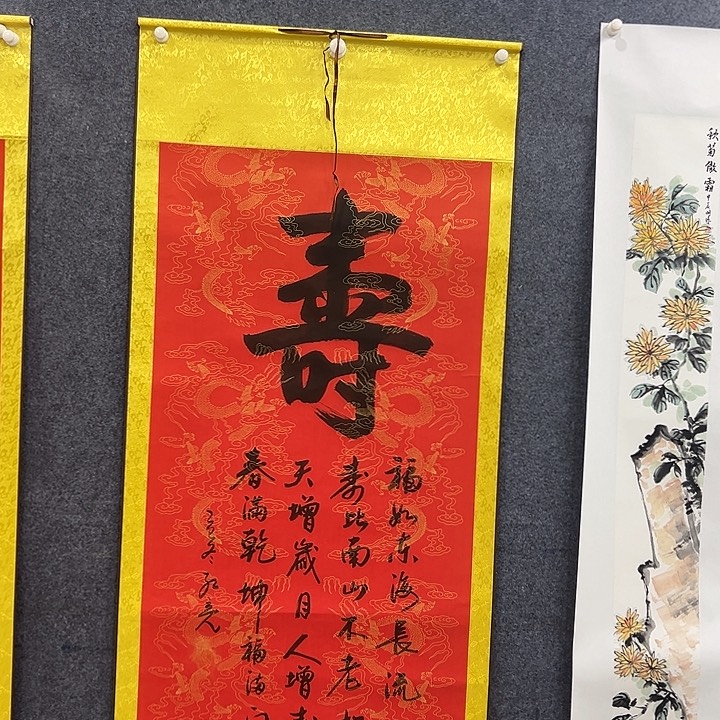 壽
福如东海長流
寿比南山不老
天增歲月人增寿
春滿乾坤福滿门
秋菊傲霜